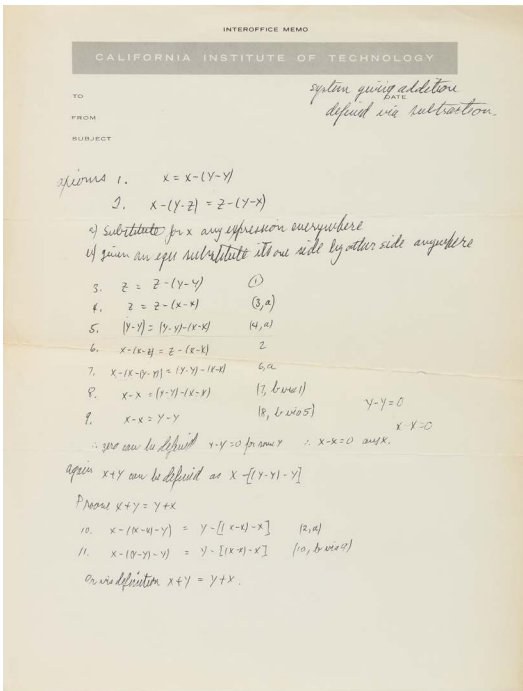 INTEROFFICE MEMO
CALIFORNIA INSTITUTE OF TECHNOLOGY
system giving addition
TO
DATE
defined via subtraction.
FROM
SUBJECT
axioms 1. x = x-(y-y)
2. x-(y-z) = z-(y-x)
a) Substitute for x any expression everywhere
b) given an equ substitute its one side by other side anywhere
3. z = z-(y-y) (1)
4. z = z-(x-x) (3,a)
5. (y-y) = (y-y)-(x-x) (4,a)
6. x-(x-z) = z-(x-x) 2
7. x-(x-(y-y)) = (y-y)-(x-x) 6,a
8. x-x = (y-y)-(x-x) (7, b via 1)
9. x-x = y-y (8, b via 5)
y-y=0
x-x=0
∴ zero can be defined y-y=0 for some y ∴ x-x=0 any x.
again x+y can be defined as x-[(y-y)-y]
Prove x+y = y+x
10. x-((x-x)-y) = y-[(x-x)-x] (2,a)
11. x-((y-y)-y) = y-[(x-x)-x] (10, b via 9)
or via definition x+y = y+x.